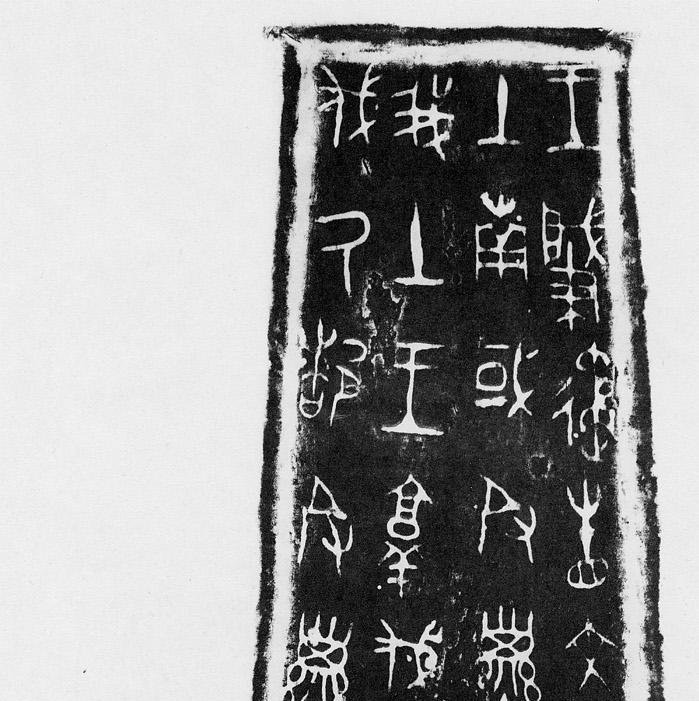 王肇遹省文
土南或𠬝孳
我土王𦎫伐
伐氒都𠬝孳